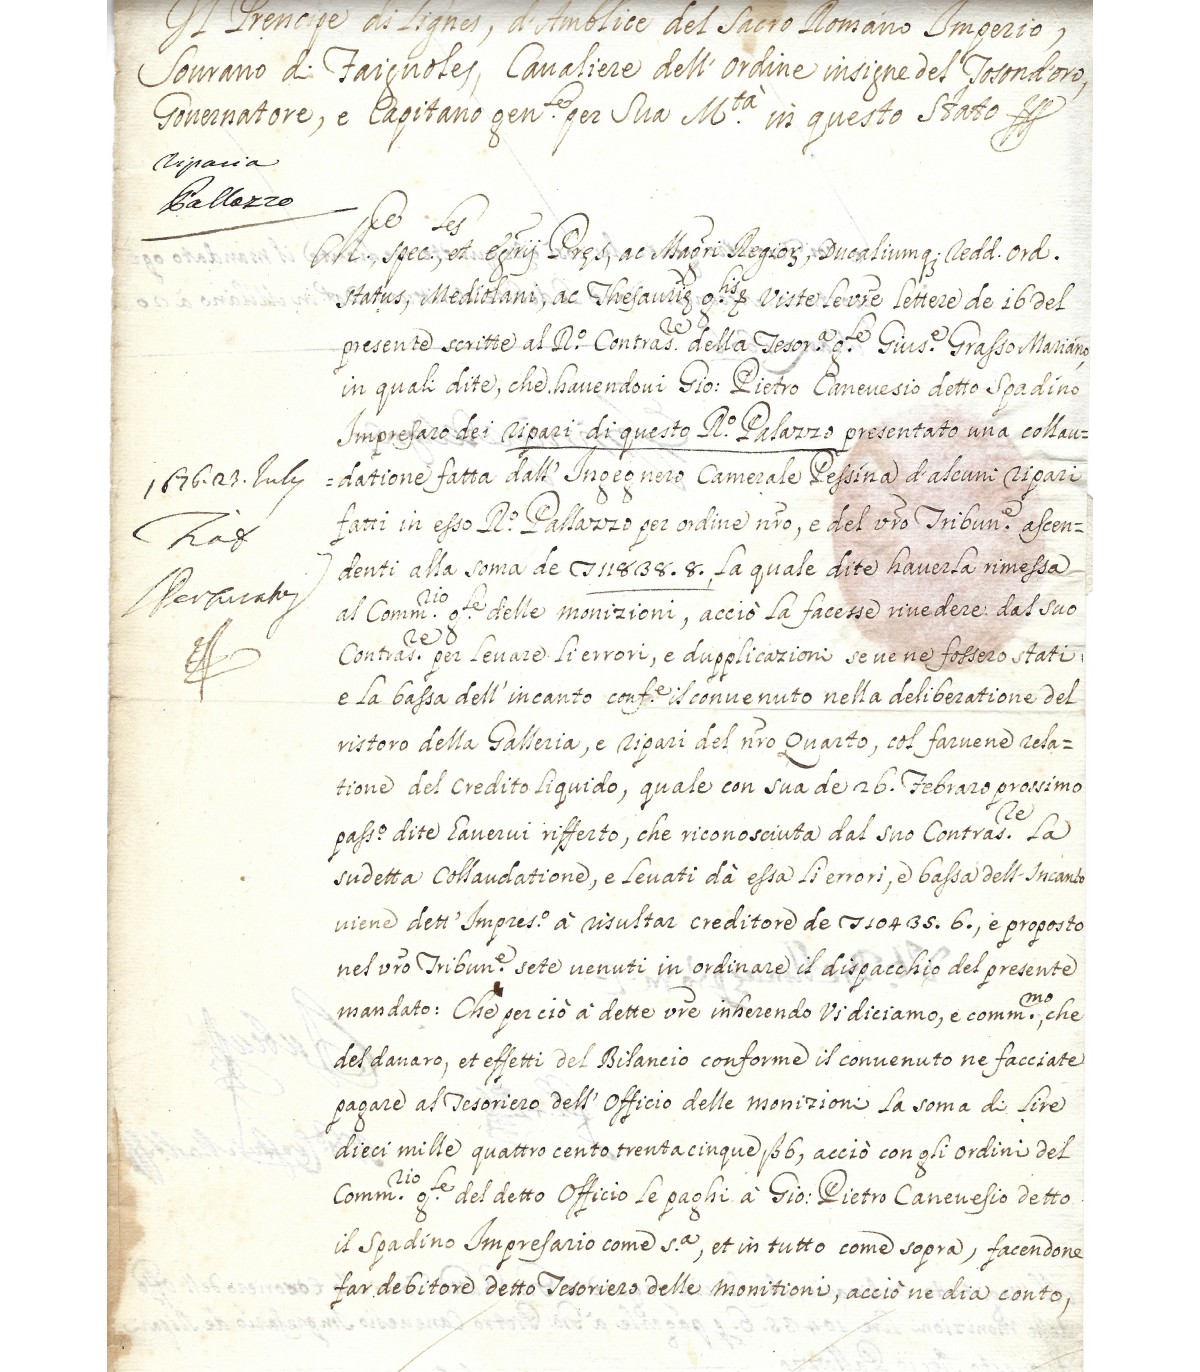 Il Prencipe di Lignes, d'Amblice del Sacro Romano Imperio,
Sourano di Faignoles, Cavaliere dell' ordine insigne del Tosond'oro,
Governatore, e Capitano gen.le per Sua M.tà in questo Stato
riparia
Pallazzo
M.ce, spec.les, et Egrij Pres, ac Magri Regior, Ducaliumq; redd. ord.
status, Mediolani, ac Thesauris g.his Viste le vre lettere de 16 del
presente scritte al R.o Contras.re della Tesor.a g.le Gius.e Grasso Mariano,
in quali dite, che havendovi Gio: Pietro Canevesio detto Spadino
Impresaro dei ripari di questo R.o Palazzo presentato una collau=
=datione fatta dall' Ingegnero Camerale Pessina d'alcuni ripari
fatti in esso R.o Pallazzo per ordine nro, e del vro Tribun.e ascen=
denti alla soma de 11838. 8., la quale dite haverla rimessa
al Comm.rio g.le delle monizioni, acciò la facesse rivedere dal suo
Contras.re per levare li errori, e dupplicazioni se ve ne fossero stati
e la bassa dell' incanto conf.e il convenuto nella deliberatione del
ristoro della Galleria, e ripari del nro Quarto, col farvene rela=
tione del Credito liquido, quale con sua de 26. Febraro prossimo
pass.o dite havervi rifferto, che riconosciuta dal suo Contras.re La
sudetta Collaudatione, e levati dà essa li errori, e bassa dell'Incanto
viene dett' Impres.o à risultar creditore de 10435. 6., e proposto
nel vro Tribun.e sete venuti in ordinare il dispacchio del presente
mandato: Che perciò à dette vre inherendo Vi diciamo, e comm.mo, che
del danaro, et effetti del Bilancio conforme il convenuto ne facciate
pagare al Tesoriero dell' Officio delle monizioni la soma di Lire
dieci mille quattro cento trenta cinque ß 6, acciò con gli ordini del
Comm.rio g.le del detto Officio le paghi à Gio: Pietro Canevesio detto
il Spadino Impresario come s.a, et in tutto come sopra, facendone
far debitore detto Tesoriero delle monitioni, acciò ne dia conto,
1676. 23. July